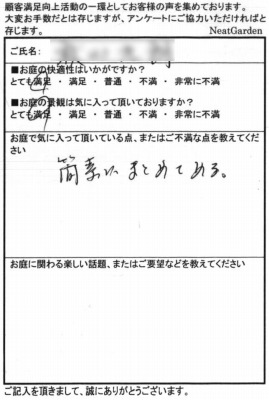 顧客満足向上活動の一環としてお客様の声を集めております。
大変お手数だとは存じますが、アンケートにご協力いただければと
存じます。 NeatGarden
ご氏名
■お庭の快適性はいかがですか？
とても満足 ・ 満足 ・ 普通 ・ 不満 ・ 非常に不満
■お庭の景観は気に入って頂いておりますか？
とても満足 ・ 満足 ・ 普通 ・ 不満 ・ 非常に不満
お庭で気に入って頂いている点、またはご不満な点を教えてくだ
さい
簡素にまとめてある。
お庭に関わる楽しい話題、またはご要望などを教えてください
ご記入を頂きまして、誠にありがとうございます。